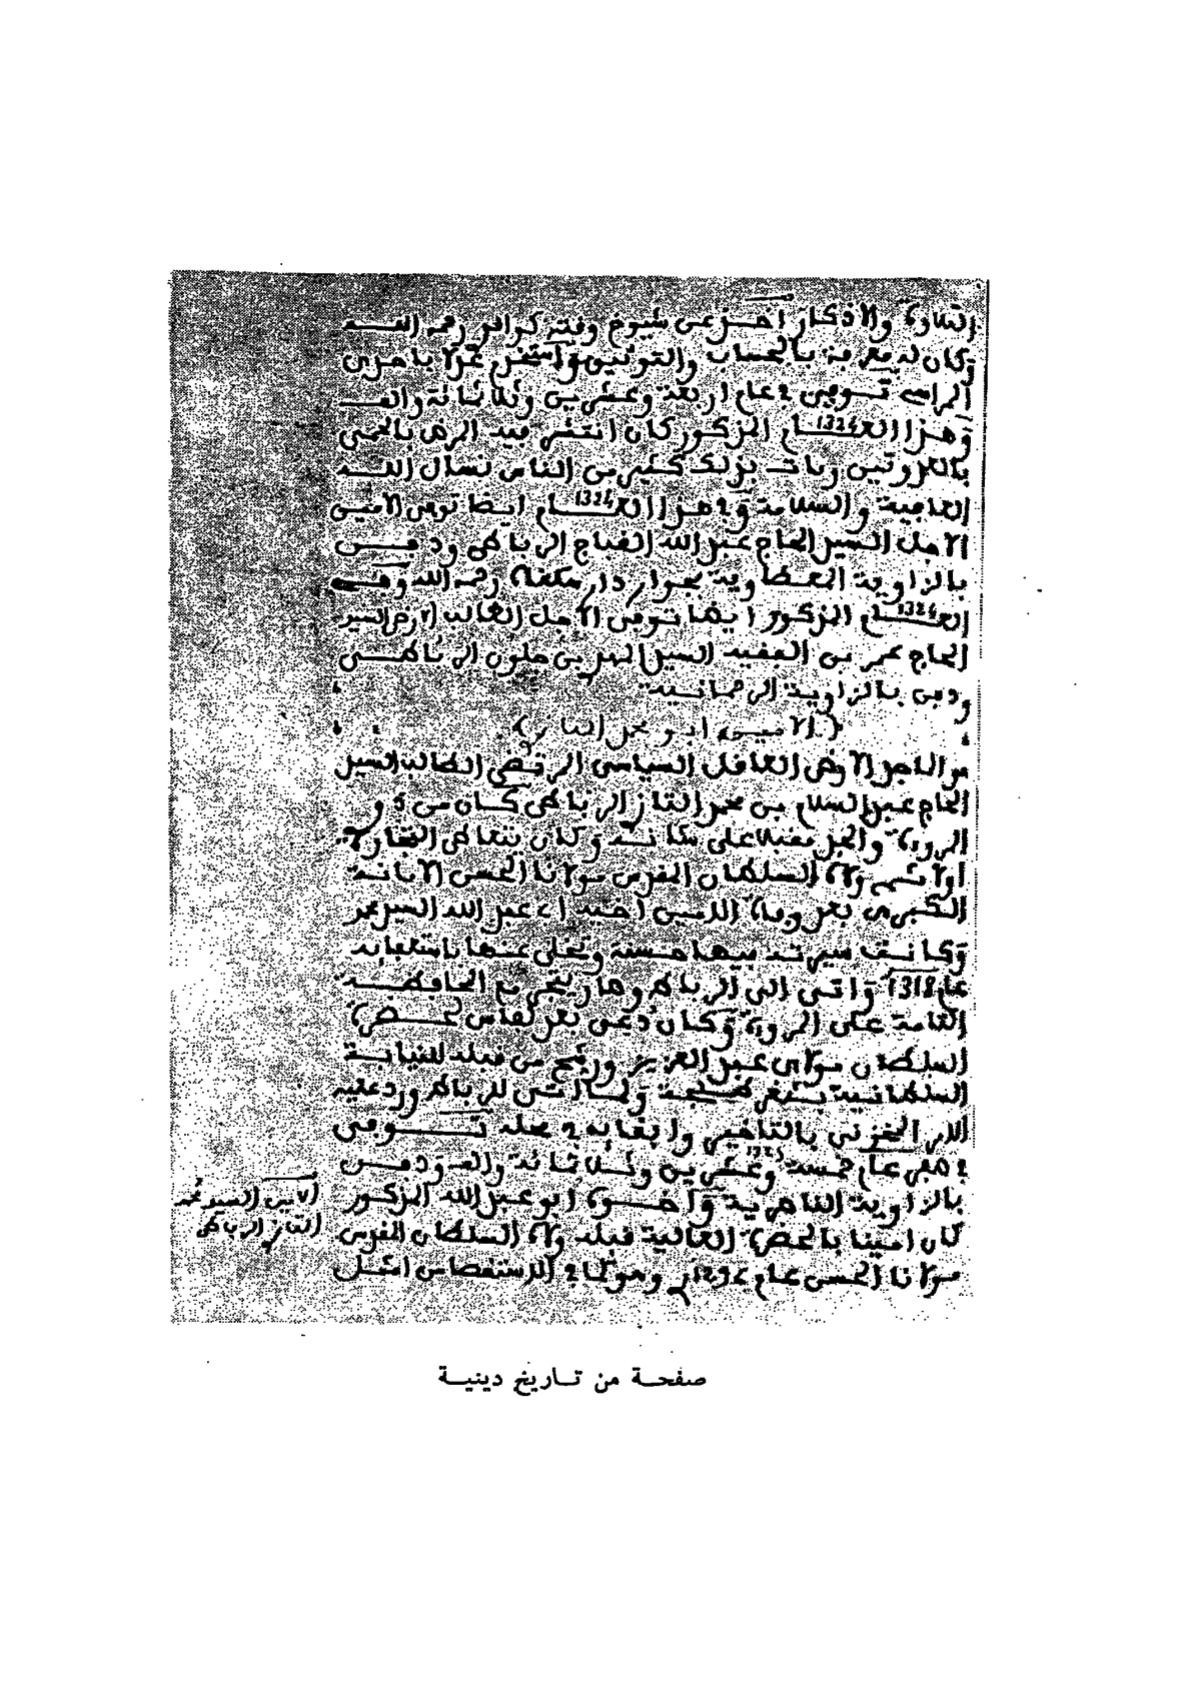 التلاوة والاذكار أخذ عن شيوخ وقته كوافو رحمه الله
وكان له معرفة بالحساب والتوقيت واستمر عدلا باحدى
المراسى توفي في عام اربعة وعشرين وثلاثمائة والف
وهذا العام 1324 المذكور كان انتشر فيه المرض بالحمى
بالعروتين ومات بذلك كثير من الناس نسأل الله
العافية والسلامة وفي هذا العام 1324 ايضا توفي الامين
الاجل السيد الحاج عبد الله القباج الرباطي ودفن
بالزاوية الغظاوية بجوار دار سكناه رحمه الله وفي
العام 1324 المذكور ايضا توفي الاجل الطالب الارضى السيد
الحاج عمر بن الفقيه السيد المهدي بن جلون الرباطي
ودفن بالزاوية الرحمانية
(الامين ابو محمد التاز)
هو الماجد الارضى العاقل السياسى المرتضى الطالب السيد
الحاج عبد السلام بن محمد التاز الرباطي كان من ذوي
المروءة والجد مقبلا على شانه وكان يتعاطى التجارة
أولا ثم ولاه السلطان المقدس مولانا الحسن الامانة
الكبرى بعد وفاة الامين أخيه ابي عبد الله السيد محمد
وكانت سيرته فيها حسنة وتخلى عنها باستعفائه
عام 1318 وأتى الى الرباط وصار يتجر مع المحافظة
التامة على المروءة وكان دعي بعد لفاس لحضرة
السلطان مولاي عبد العزيز ورشح من قبله للنيابة
السلطانية بثغر طنجة ولما أتى للرباط ورد عليه
الامر المخزني بالتاخير وابقائه في محله توفي
في صفر عام خمسة وعشرين 1325 وثلاثمائة والف ودفن
بالزاوية الناصرية وأخوه ابو عبد الله المذكور
كان امينا بالحضرة العالية قبله ولاه السلطان المقدس
مولانا الحسن عام 1292 وهو كما في الاستقصاء أمثل
الامين السيد محمد
التاز الرباطي
صفحة من تاريخ دينية